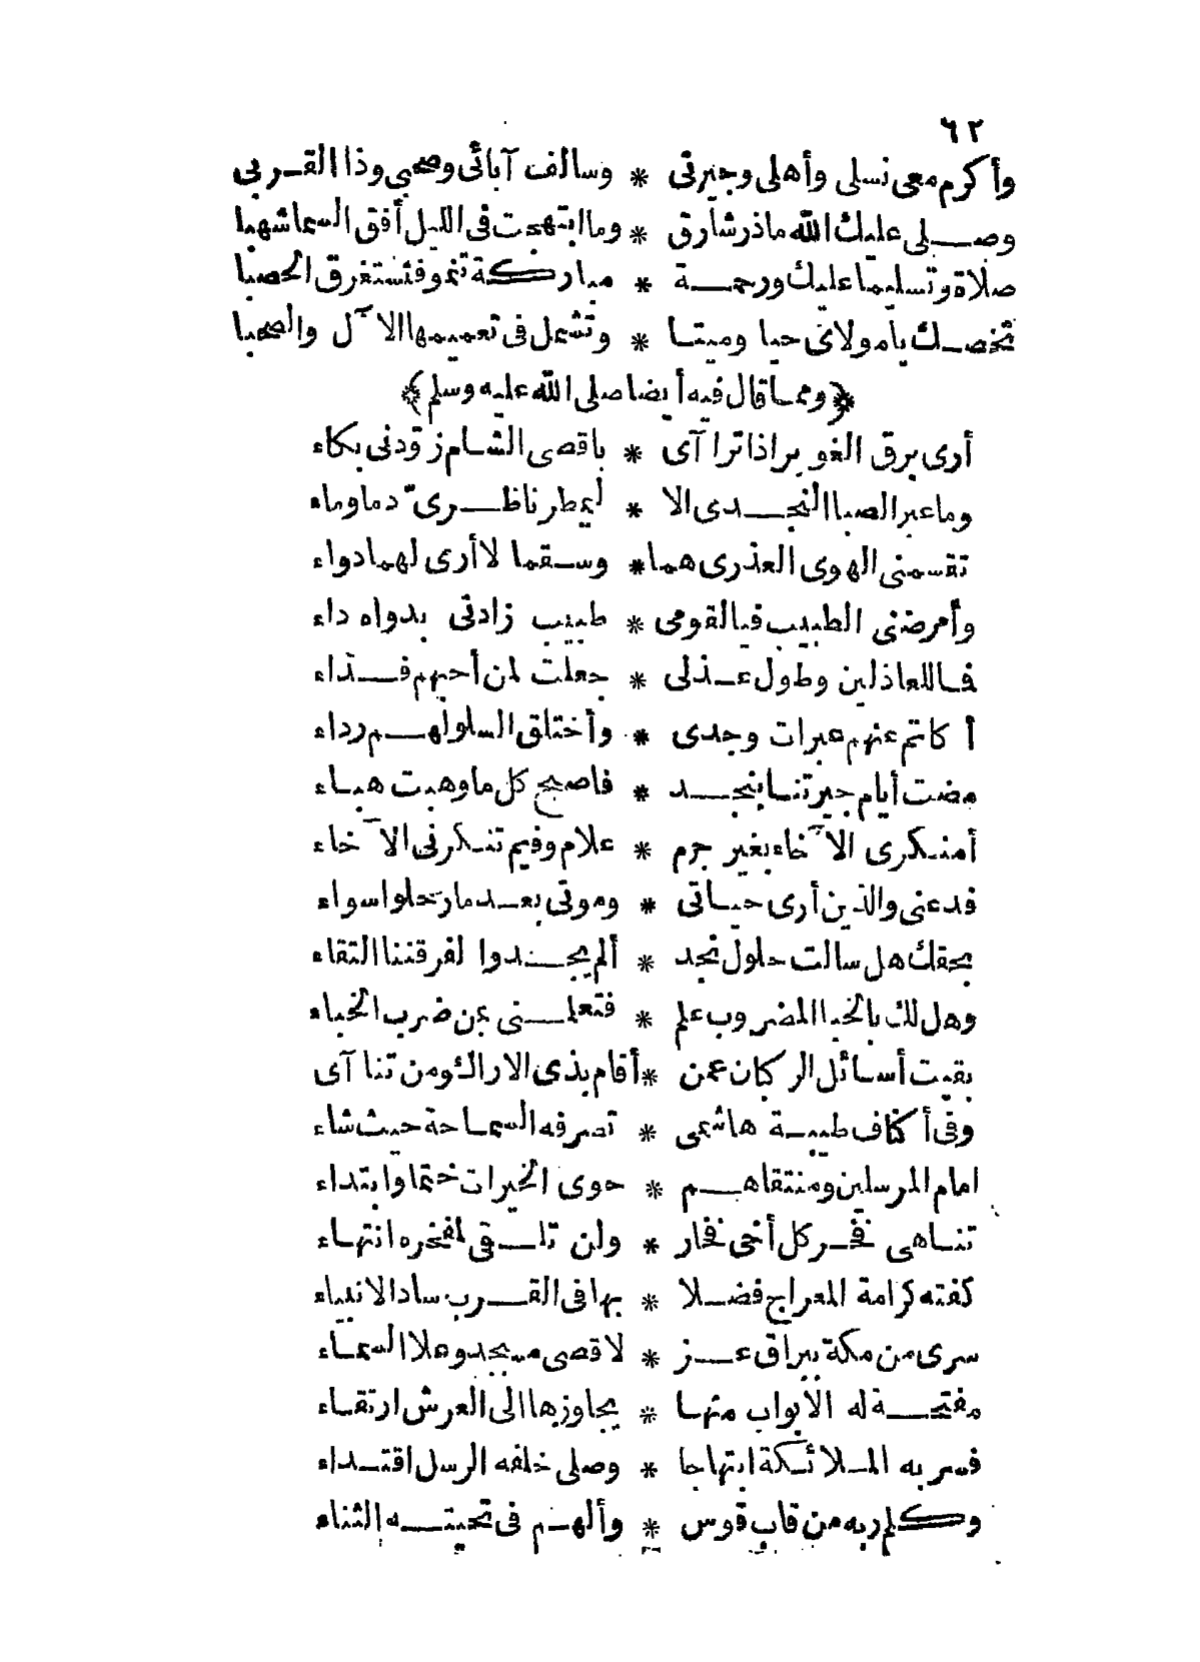 ٦٢
وأكرم معى نسلى وأهلى وجيرتى * وسالف آبائى وصحبى وذا القربى
وصلى عليك الله ماذر شارق * وما ابتهجت فى الليل أفق السما شهبا
صلاة وتسليما عليك ورحمة * مباركة تنمو فتستغرق الحصبا
تخصك يا مولاى حيا وميتا * وتشمل فى تعميمها الآل والصحبا
﴿ومما قال فيه أيضا صلى الله عليه وسلم﴾
أرى برق الغوير اذا تراآى * باقصى الشام زودنى بكاء
وما عبر الصبا النجدى الا * ليمطر ناظرىّ دما وماء
تقسمنى الهوى العذرى هما * وسقما لا أرى لهما دواء
وأمرضنى الطبيب فيالقومى * طبيب زادنى بدواه داء
فاللعاذلين وطول عذلى * جعلت لمن أحبهم فداء
أكاتم عنهم عبرات وجدى * وأختلق السلو لهم رداء
مضت أيام جيرتنا بنجد * فاصبح كل ما وهبت هباء
أمنكرى الآخاء بغير جرم * علام وفيم تنكرنى الآخاء
فدعنى والذين أرى حياتى * وموتى بعد ما رتحلوا سواء
بحقك هل سالت حلول نجد * ألم يجدوا لفرقتنا التقاء
وهل لك بالخبا المضروب علم * فتعلمنى بمن ضرب الخباء
بقيت أسائل الركبان عمن * أقام بذى الاراك ومن تناآى
وفى أكناف طيبة هاشمى * تصرفه السماحة حيث شاء
امام المرسلين ومنتقاهم * حوى الخيرات ختما وابتداء
تناهى فخر كل أخى فخار * ولن تلقى لمفخره انتهاء
كفته كرامة المعراج فضلا * بها فى القرب ساد الانبياء
سرى من مكة ببراق عز * لاقصى مسجد وعلا السماء
مفتحة له الأبواب منها * يجاوزها الى العرش ارتقاء
فسر به الملائكة ابتهاجا * وصلى خلفه الرسل اقتداء
وكلم ربه من قاب قوس * وألهم فى تحيته الثناء